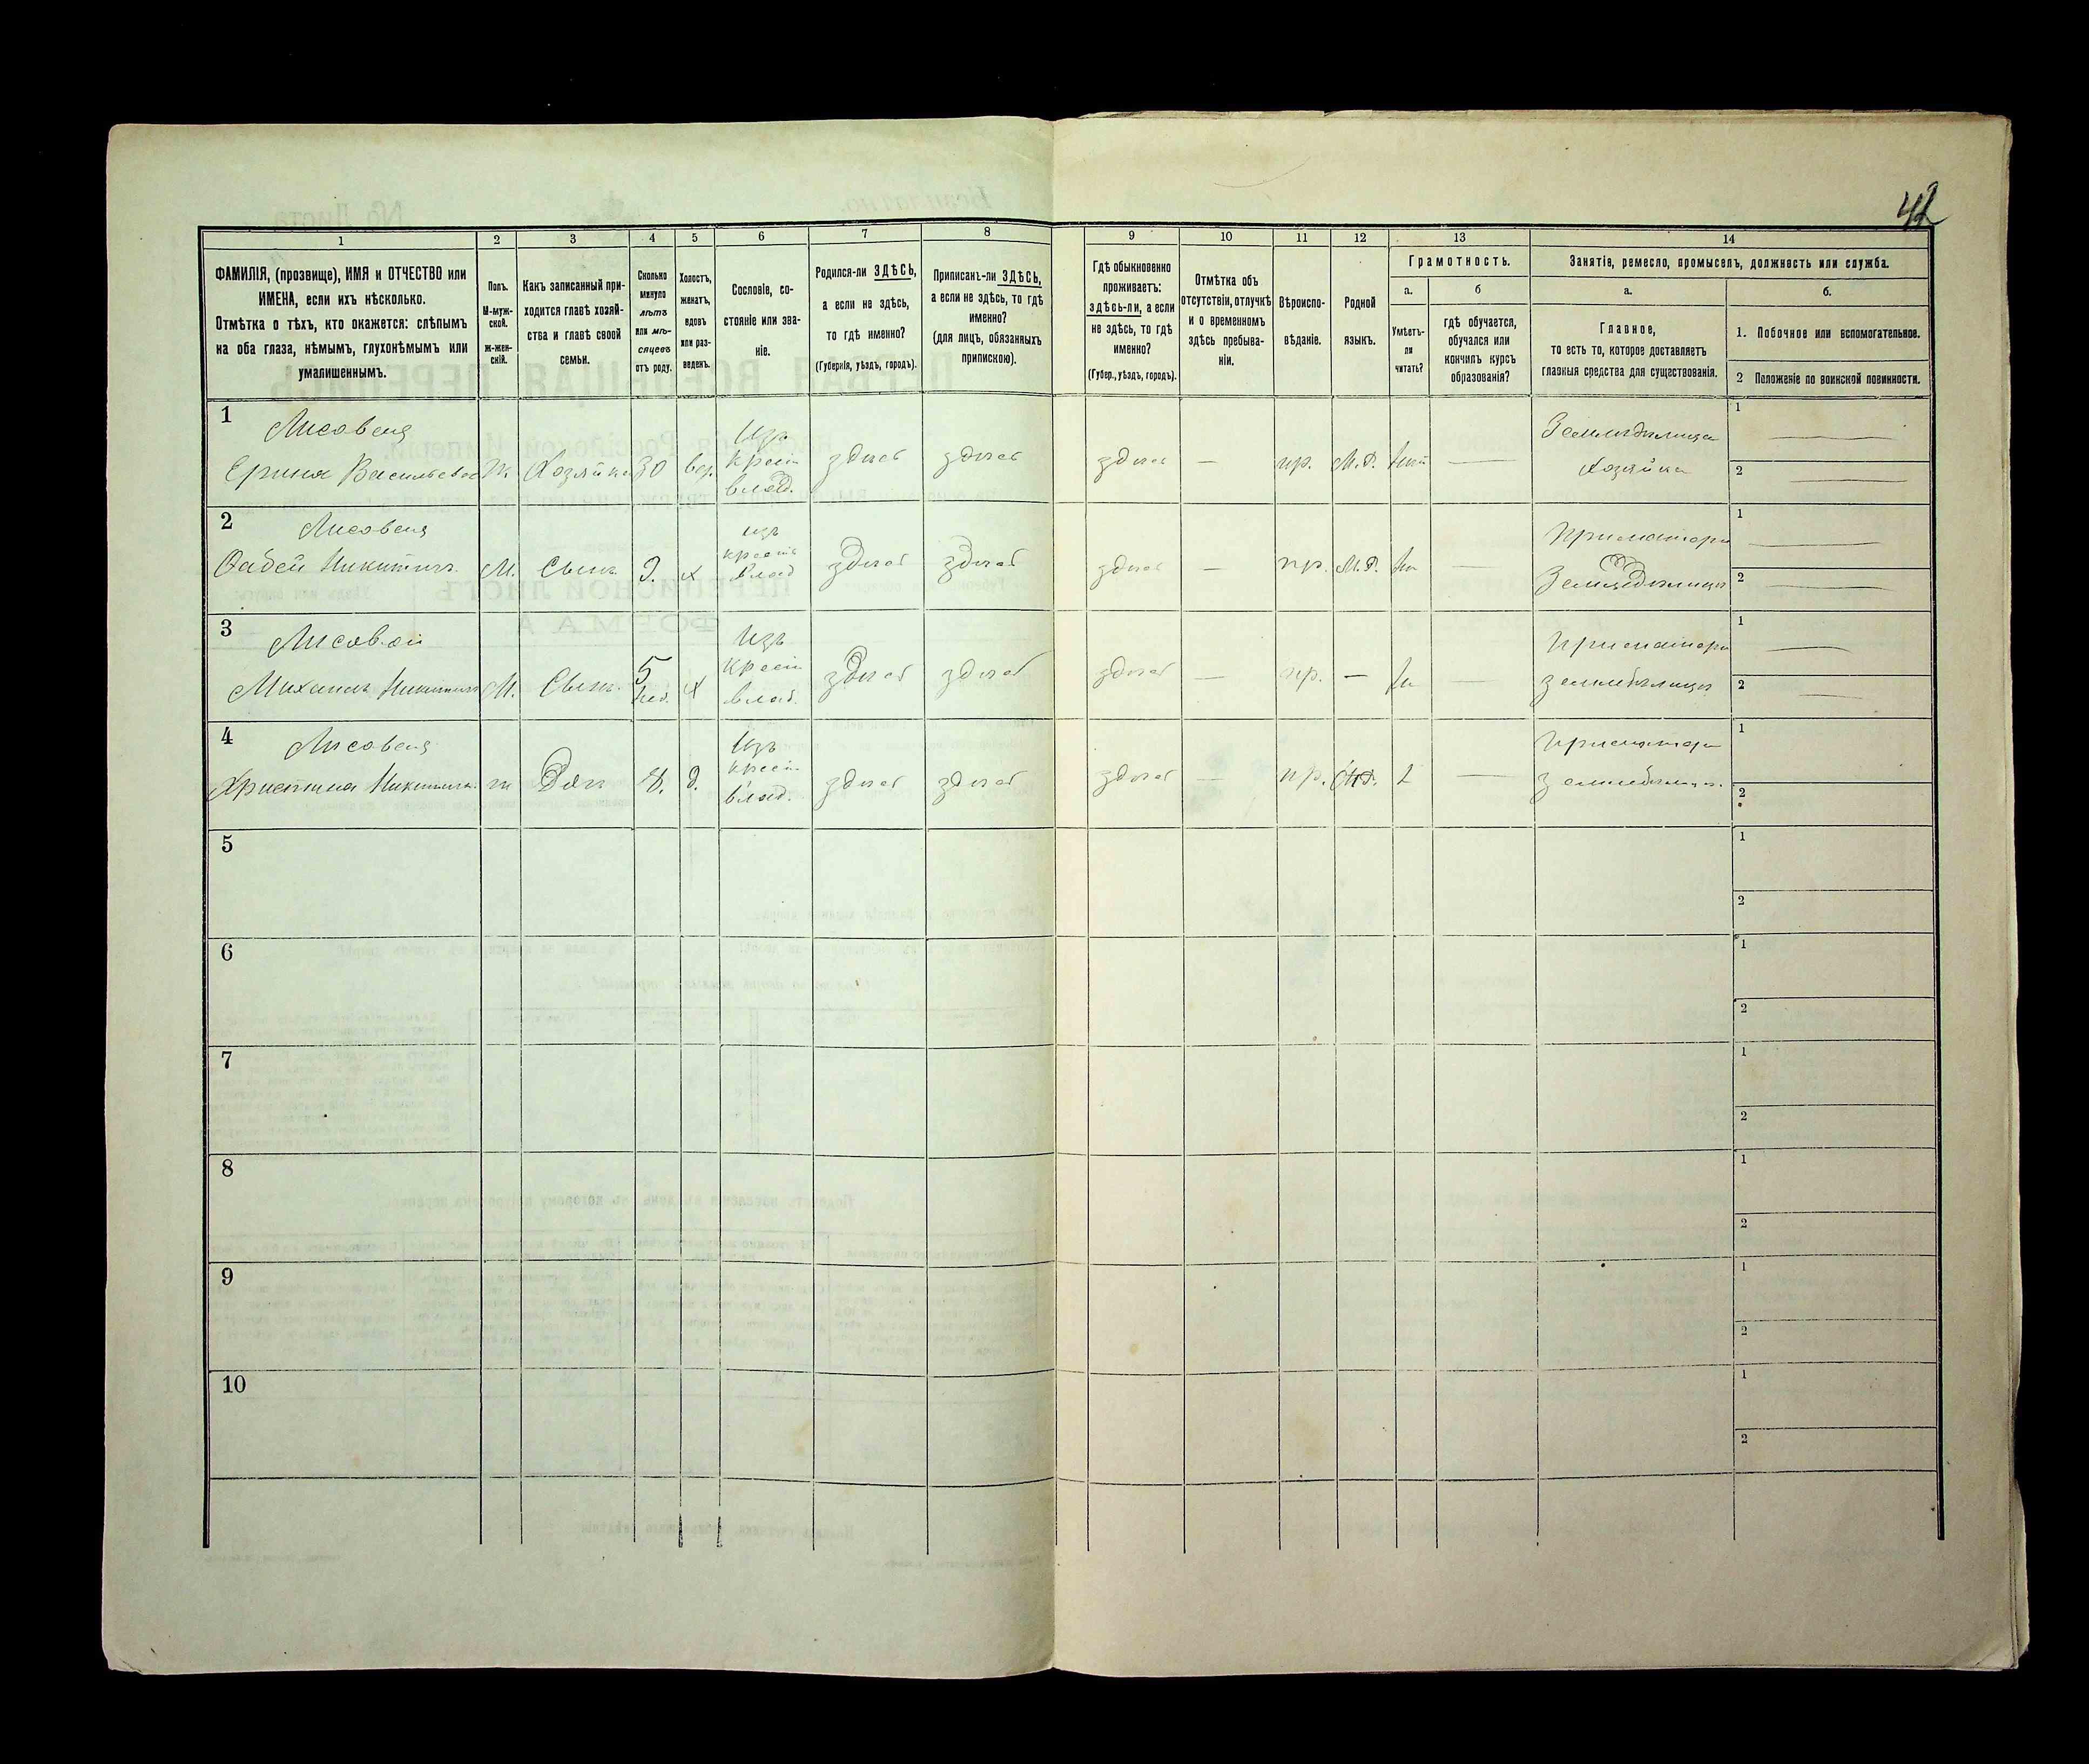 42
1 2 3 4 5 6 7 8 9 10 11 12 13 14
ФАМИЛІЯ, (прозвище), ИМЯ и ОТЧЕСТВО или
ИМЕНА, если ихъ нѣсколько.
Отмѣтка о тѣхъ, кто окажется: слѣпымъ
на оба глаза, нѣмымъ, глухонѣмымъ или
умалишеннымъ.
Полъ.
М-муж-
ской.
ж-жен-
скій.
Какъ записанный при-
ходится главѣ хозяй-
ства и главѣ своей
семьи.
Сколько
минуло
лѣтъ
или мѣ-
сяцевъ
отъ роду.
Холостъ,
женатъ,
вдовъ
или раз-
веденъ.
Сословіе, со-
стояніе или зва-
ніе.
Родился-ли ЗДѢСЬ,
а если не здѣсь,
то гдѣ именно?
(Губернія, уѣздъ, городъ).
Приписанъ-ли ЗДѢСЬ,
а если не здѣсь, то гдѣ
именно?
(для лицъ, обязанныхъ
припискою).
Гдѣ обыкновенно
проживаетъ:
здѣсь-ли, а если
не здѣсь, то гдѣ
именно?
(Губер., уѣздъ, городъ).
Отмѣтка объ
отсутствіи, отлучкѣ
и о временномъ
здѣсь пребыва-
ніи.
Вѣроиспо-
вѣданіе.
Родной
языкъ.
Грамотность.
а.
Умѣетъ-
ли
читать?
б
гдѣ обучается,
обучался или
кончилъ курсъ
образованія?
Занятіе, ремесло, промыселъ, должность или служба.
а.
Главное,
то есть то, которое доставляетъ
главныя средства для существованія.
б.
1. Побочное или вспомогательное.
2 Положеніе по воинской повинности.
1 Лисовена
Ерина Васильевна Ж. Хозяйка 30 вд. Изъ крест влад. здѣсь здѣсь здѣсь — пр. М.Р. — Земледѣлица Хозяйка
1 —
2 —
2 Лисовена
Фадей Никитичъ М. Сынъ 9. х изъ крест влад здѣсь здѣсь здѣсь — пр. М.Р. — При матери Земледѣлица
1 —
2 —
3 Лисовой
Михаилъ Никитичъ М. Сынъ. 5 нед. х Изъ крест влад. здѣсь здѣсь здѣсь — пр. — — При матери земледѣлица
1 —
2 —
4 Лисовена
Христина Никитична ж Дочь 8. д. Изъ крест влад. здѣсь здѣсь здѣсь — пр. — При матери земледѣлица.
1
2
5
1
2
6
1
2
7
1
2
8
1
2
9
1
2
10
1
2